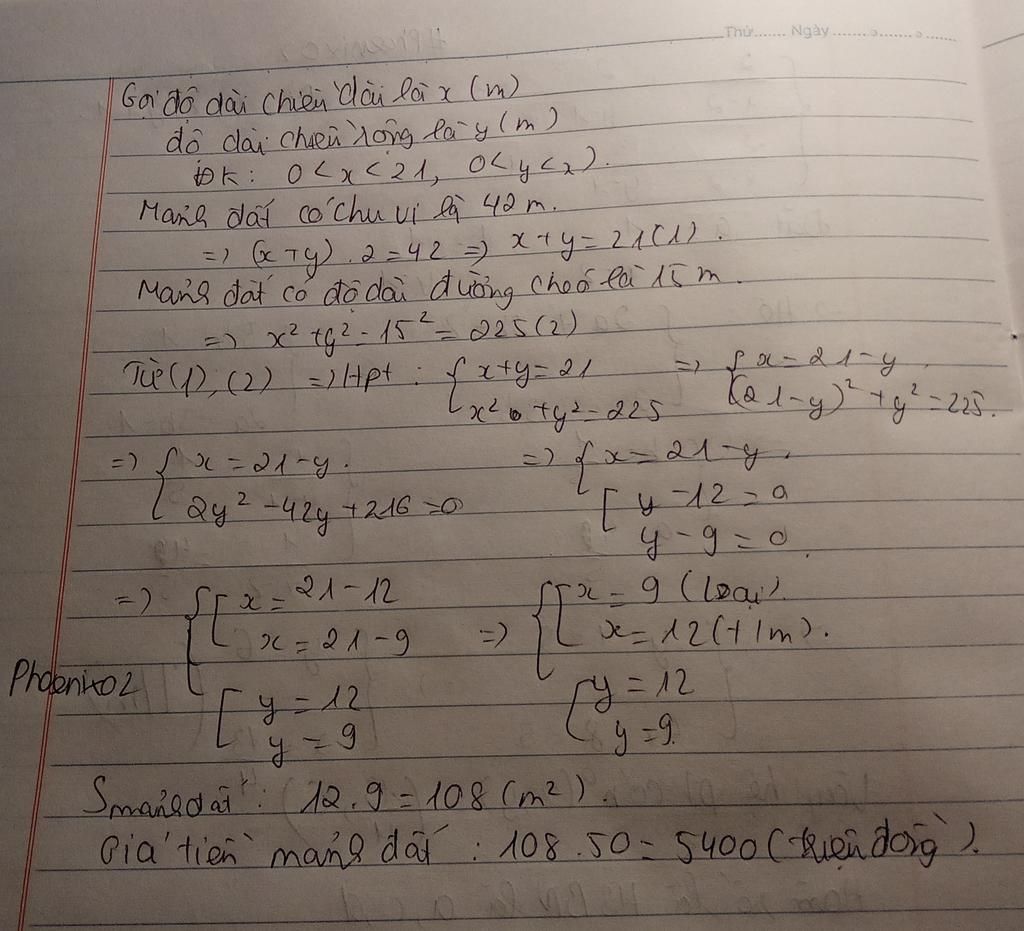 Thứ....... Ngày ....... ......... .......
Gọi độ dài chiều dài là x (m)
độ dài chiều rộng là y (m)
ĐK: 0 < x < 21, 0 < y < x).
Mảnh đất có chu vi là 42 m.
=> (x + y) . 2 = 42 => x + y = 21 (1).
Mảnh đất có độ dài đường chéo là 15 m.
=> x² + y² = 15² = 225 (2)
Từ (1), (2) => Hpt : { x + y = 21 => { x = 21 - y
x² + y² = 225 (21 - y)² + y² = 225.
=> { x = 21 - y. => { x = 21 - y.
2y² - 42y + 216 = 0 [ y - 12 = 0
y - 9 = 0
=> { [ x = 21 - 12 { [ x = 9 (loại).
x = 21 - 9 => x = 12 (t/m).
Phoenix02
[ y = 12 [ y = 12
y = 9 y = 9.
S mảnh đất : 12 . 9 = 108 (m²).
Giá tiền mảnh đất : 108 . 50 = 5400 (triệu đồng).